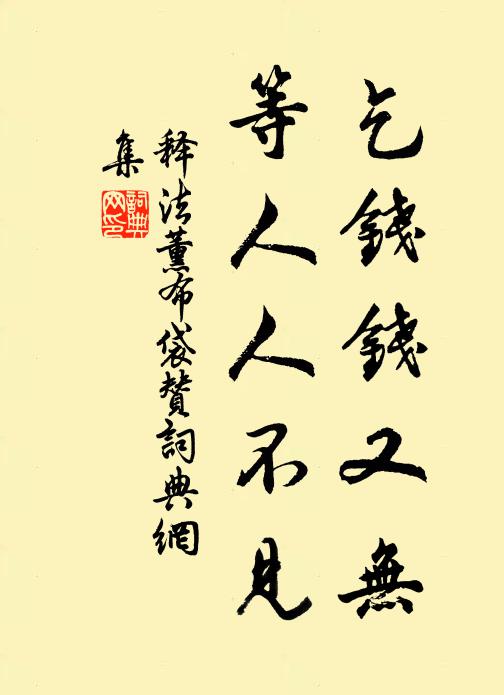 乞錢錢又無
等人人不見
释法薰布袋赞詞典網
集
詞典
网印